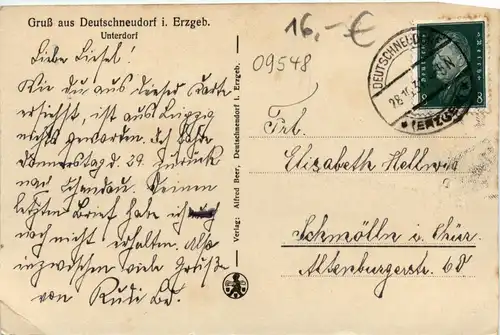 Gruß aus Deutschneudorf i. Erzgeb.
Unterdorf
16,-€
09548
DEUTSCHNEUDO
(ERZGEB
8
8
Liebe Liesel!
Wie Du aus dieser Karte
ersiehst, ist aus Leipzig
nichts geworden. Ich fahre
Donnerstag d. 29. zurück
nach Schandau. Deinen
letzten Brief habe ich
noch nicht erhalten. Also
inzwischen viele Grüße
von Rudi
Verlag: Alfred Beer, Deutschneudorf i. Erzgeb.
Frl.
Elisabeth Hellwig
Schmölln i. Thür.
Altenburgerstr. 6d